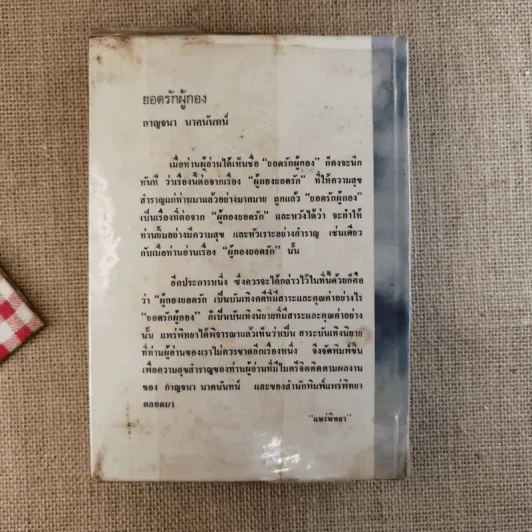 ยอดรักผู้กอง
กาญจนา นาคนันทน์
เมื่อท่านผู้อ่านได้เห็นชื่อ “ยอดรักผู้กอง” ก็คงจะนึก
ทันที ว่าเรื่องนี้ต่อจากเรื่อง “ผู้กองยอดรัก” ที่ให้ความสุข
สำราญแก่ท่านมาแล้วอย่างมากมาย ถูกแล้ว “ยอดรักผู้กอง”
เป็นเรื่องที่ต่อจาก “ผู้กองยอดรัก” และหวังได้ว่า จะทำให้
ท่านยิ้มอย่างมีความสุข และหัวเราะอย่างสำราญ เช่นเดียว
กับเมื่อท่านอ่านเรื่อง “ผู้กองยอดรัก” นั้น
อีกประการหนึ่ง ซึ่งควรจะได้กล่าวไว้ในที่นี้ด้วยก็คือ
ว่า “ผู้กองยอดรัก เป็นบันเทิงคดีที่มีสาระและคุณค่าอย่างไร
“ยอดรักผู้กอง” ก็เป็นบันเทิงนิยายที่มีสาระและคุณค่าอย่าง
นั้น แพร่พิทยาได้พิจารณาแล้วเห็นว่าเป็น สาระบันเทิงนิยาย
ที่ท่านผู้อ่านของเราไม่ควรขาดอีกเรื่องหนึ่ง จึงจัดพิมพ์ขึ้น
เพื่อความสุขสำราญของท่านผู้อ่านที่มีไมตรีจิตติดตามผลงาน
ของ กาญจนา นาคนันทน์ และของสำนักพิมพ์แพร่พิทยา
ตลอดมา
“แพร่พิทยา”